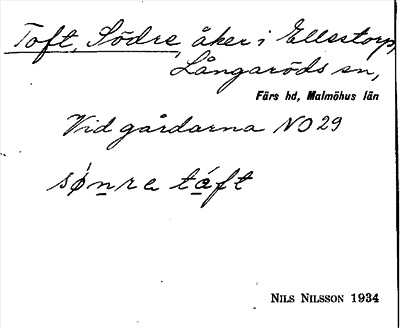 Toft, Södre, åker i Ellestorp,
Långaröds sn,
Färs hd, Malmöhus län
Vid gårdarna NO 29
sǿn̲re tá̲ft
NILS NILSSON 1934